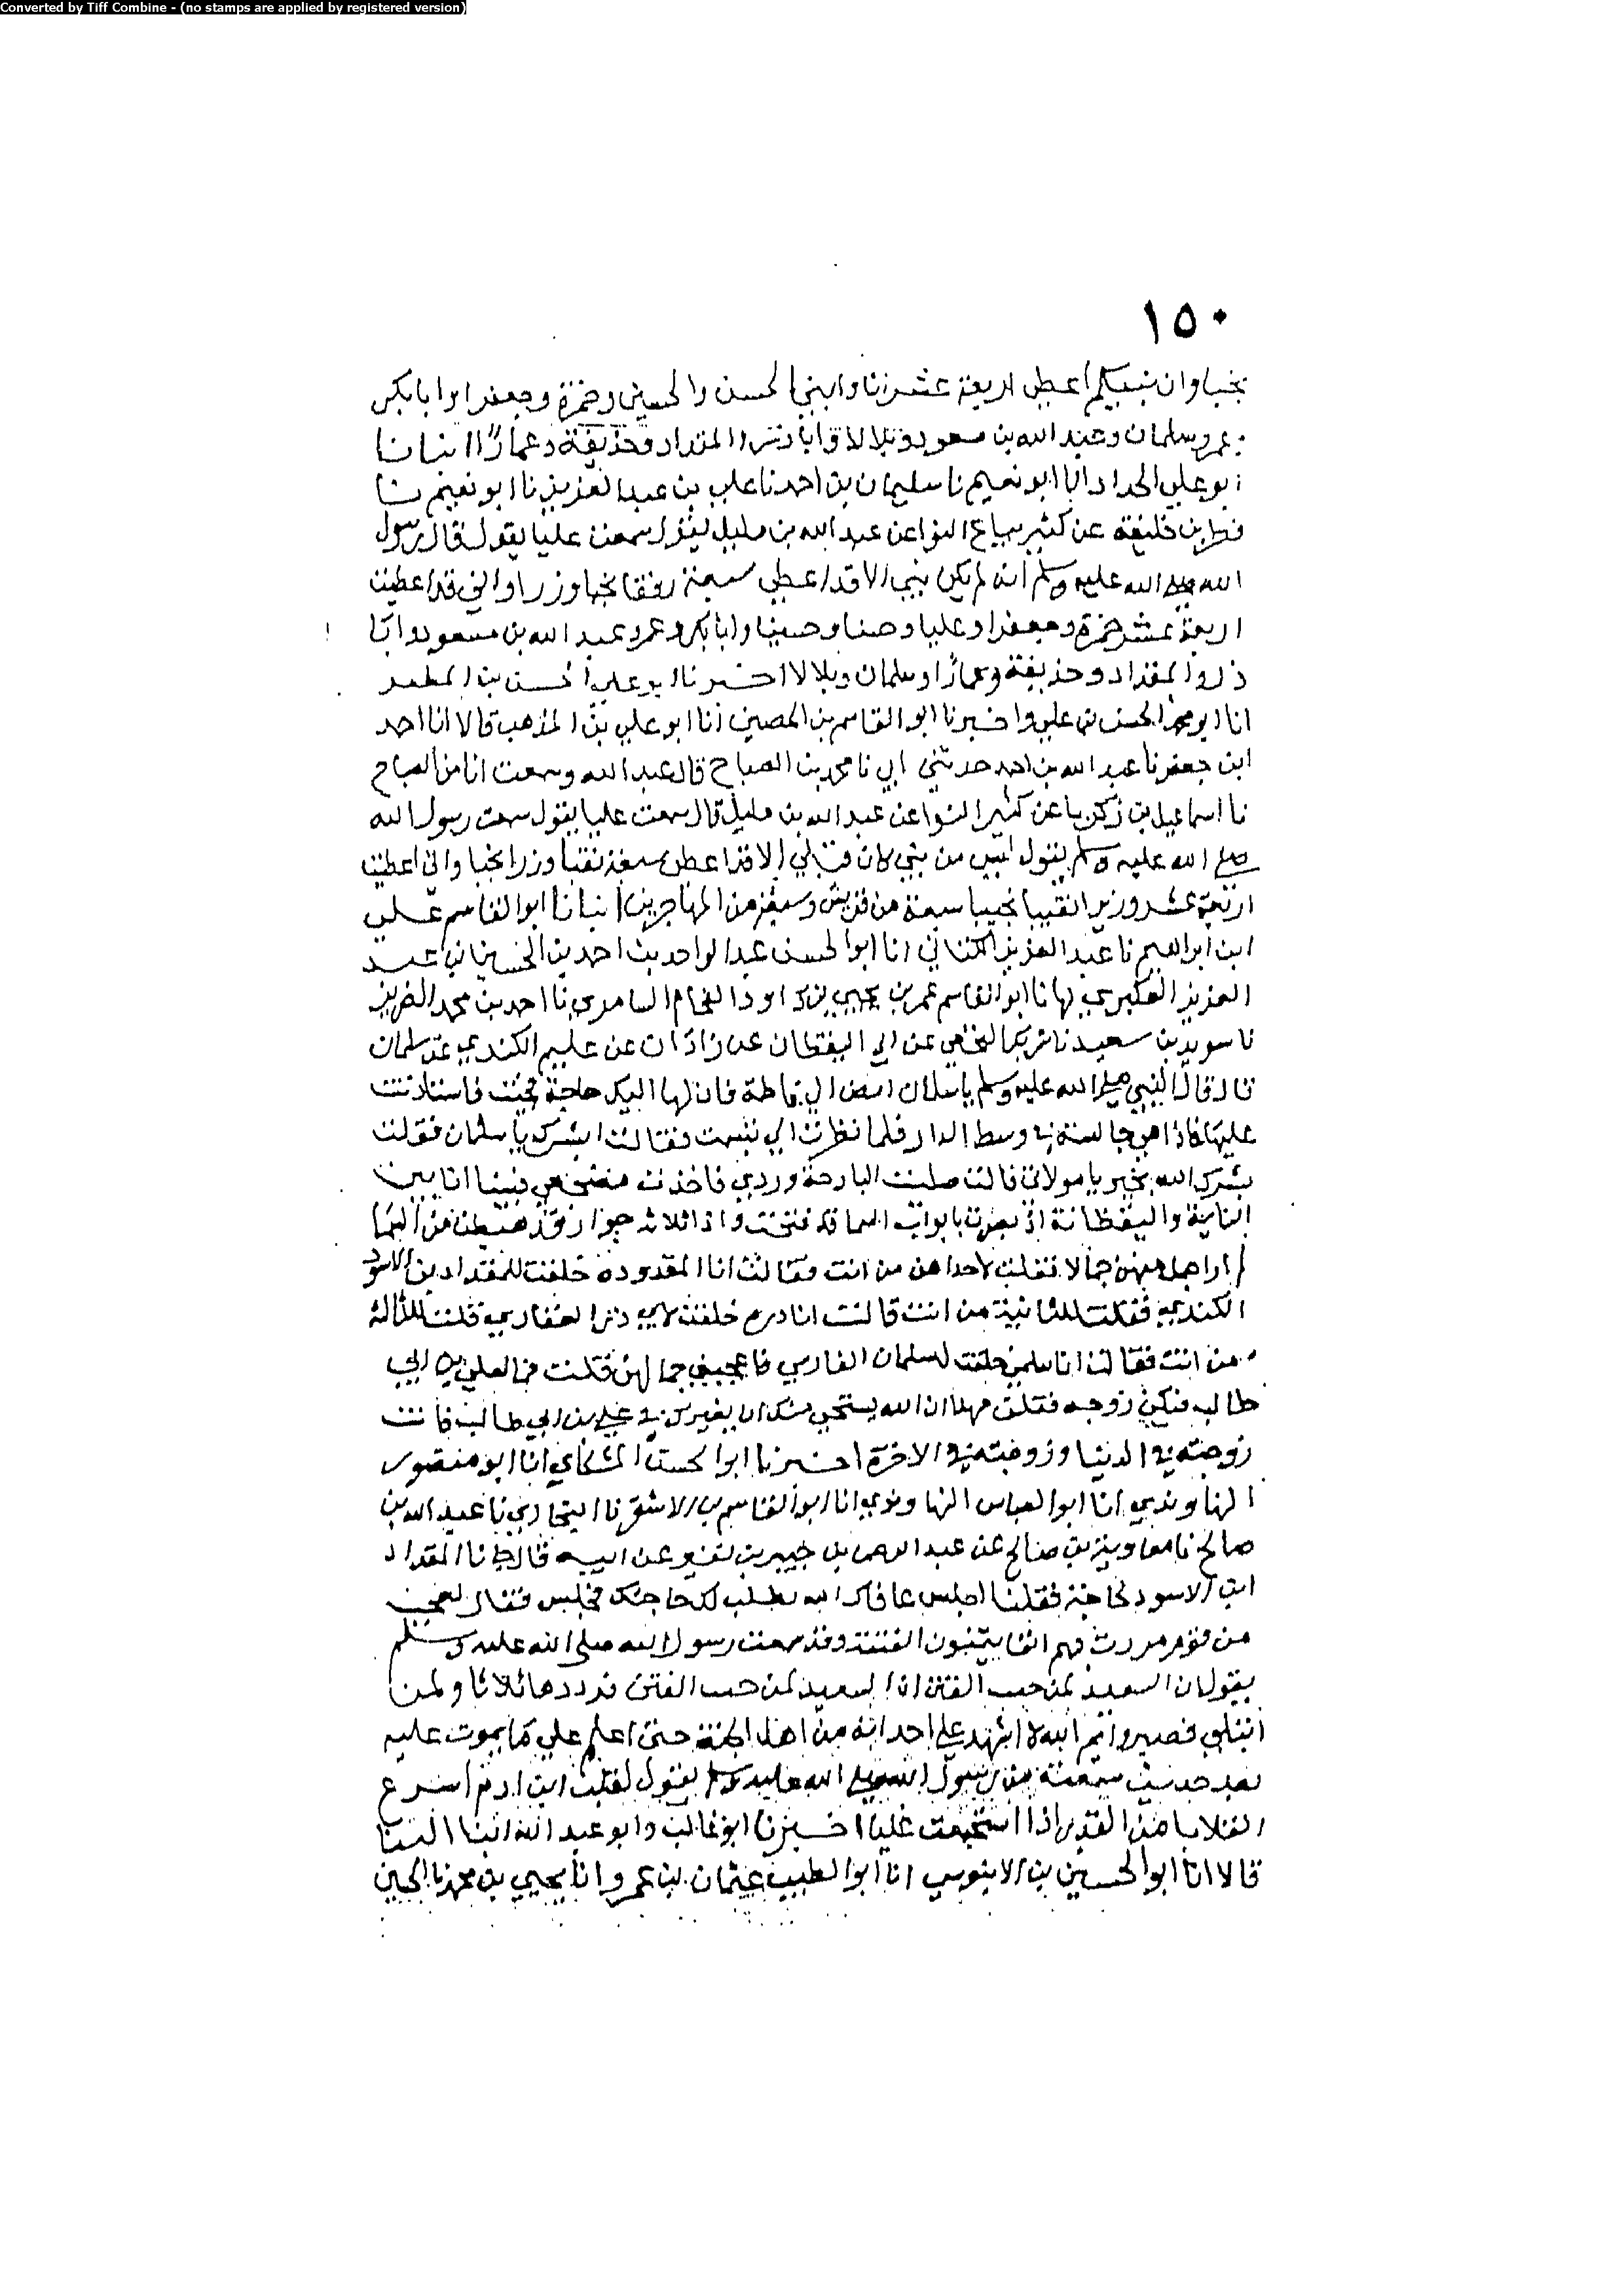 Converted by Tiff Combine - (no stamps are applied by registered version)
١٥٠
نجبا وان نبيكم اعطي اربعة عشر انا وابني الحسن والحسين وحمزة وجعفر وابا بكر
وعمر وسلمان وعبد الله بن مسعود وبلالا وابا ذر والمقداد وحذيفة وعمارًا انبانا
ابو علي الحداد انا ابو نعيم نا سليمان بن احمد نا علي بن عبد العزيز نا ابو نعيم نا
فطر بن خليفة عن كثير بياع النوا عن عبد الله بن مليل يقول سمعت عليا يقول قال رسول
الله صلي الله عليه وسلم انه لم يكن نبي الا قد اعطي سبعة رفقا نجبا وزرا واني قد اعطيت
اربعة عشر حمزة وجعفرا وعليا وحسنا وحسينا وابا بكر وعمر وعبد الله بن مسعود وابا
ذر والمقداد وحذيفة وعمارًا وسلمان وبلالا اخبرنا ابو علي الحسن بن المظفر
انا ابو محمد الحسن بن علي واخبرنا ابو القاسم بن الحصين انا ابو علي بن المذهب قالا انا احمد
ابن جعفر نا عبد الله بن احمد حدثني ابي نا محمد بن الصباح قال عبد الله وسمعت انا من الصباح
نا اسماعيل بن زكريا عن كثير النوا عن عبد الله بن مليل قال سمعت عليا يقول سمعت رسول الله
صلي الله عليه وسلم يقول ليس من نبي كان قبلي الا قد اعطي سبعة نقبا وزرا نجبا واني اعطيت
اربعة عشر وزيرا نقيبا نجيبا سبعة من قريش وسبعة من المهاجرين انبانا ابو القاسم علي
ابن ابراهيم نا عبد العزيز الكتاني انا ابو الحسن عبد الواحد بن احمد بن الحسين بن عبد
العزيز العكبري بها نا ابو القاسم عمر بن يحيي بن داود الفحام السامري نا احمد بن محمد الضرير
نا سويد بن سعيد نا شريك النخعي عن ابي اليقظان عن زاذان عن عليم الكندي عن سلمان
قال قال النبي صلي الله عليه وسلم يا سلمان امض الي فاطمة فان لها اليك حاجة فجيت فاستاذنت
عليها فاذا هي جالسة في وسط الدار فلما نظرت الي تبسمت فقالت ابشرك يا سلمان فقلت
بشرك الله بخير يا مولاتي قالت صليت البارحة وردي فاخذت مضجعي فبينا انا بين
النايمة واليقظانة اذ بصرت بابواب السما قد فتحت واذا ثلاث جوار قد هبطن من السما
لم ار اجمل منهن جمالا فقلت لاحداهن من انت فقالت انا المقدودة خلقت للمقداد بن الاسود
الكندي فقلت للثانية من انت قالت انا درم خلقت لابي ذر الغفاري فقلت للثالثة
من انت فقالت انا سلمي خلقت لسلمان الفارسي فاعجبني جمالهن فقلت فما لعلي بن ابي
طالب فيكن زوجه فقلن مهلا ان الله يستحي منك ان يغيرك في علي بن ابي طالب فانت
زوجته في الدنيا وزوجته في الاخرة اخبرنا ابو الحسن المشكاني انا ابو منصور
النهاوندي انا ابو العباس النهاوندي انا ابو القاسم بن الاشقر نا البخاري نا عبد الله بن
صالح نا معاوية بن صالح عن عبد الرحمن بن جبير بن نفير عن ابيه قال جانا المقداد
ابن الاسود لحاجة فقلنا اجلس عافاك الله نطلب لك حاجتك فجلس فقال لعجب
من قوم مررت بهم انفا يتمنون الفتنة وقد سمعت رسول الله صلي الله عليه وسلم
يقول ان السعيد لمن جنب الفتن ان السعيد لمن جنب الفتن فرددها ثلاثا ولمن
ابتلي فصبر وايم الله لا اشهد علي احد انه من اهل الجنة حتي اعلم علي ما يموت عليه
بعد حديث سمعته من رسول الله صلي الله عليه وسلم يقول لقلب ابن ادم اسرع
انقلابا من القدر اذا استجمعت غليا اخبرنا ابو غالب وابو عبد الله ابنا البنا
قالا انا ابو الحسين بن الابنوسي انا ابو الطيب عثمان بن عمرو انا يحيي بن محمد نا الحسين